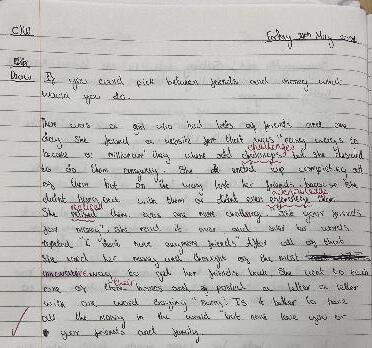 CKW
Friday 20th May
Draw
If you could pick between friends and money what
would you do.
There was a girl who had lots of friends and one
day she found a website for that was "many ways to
become a millionaire" they where odd challenges but she decided
to do them anyway. She ended up completing all
of them but on the way lost her friends because she
didnt hang out with them or didnt even acknowledge them.
She noticed there was one more challenge. "Give your friends
for money". She read it over and over the words
repeated "I don't have anymore friends" After all of that
She used her money and thought of the most
innovative way to get her friends back. She went to each
one of their houses and posted a letter a letter
with one word saying "Sorry". Is it better to have
all the money in the world but none love you or
your friends and family.